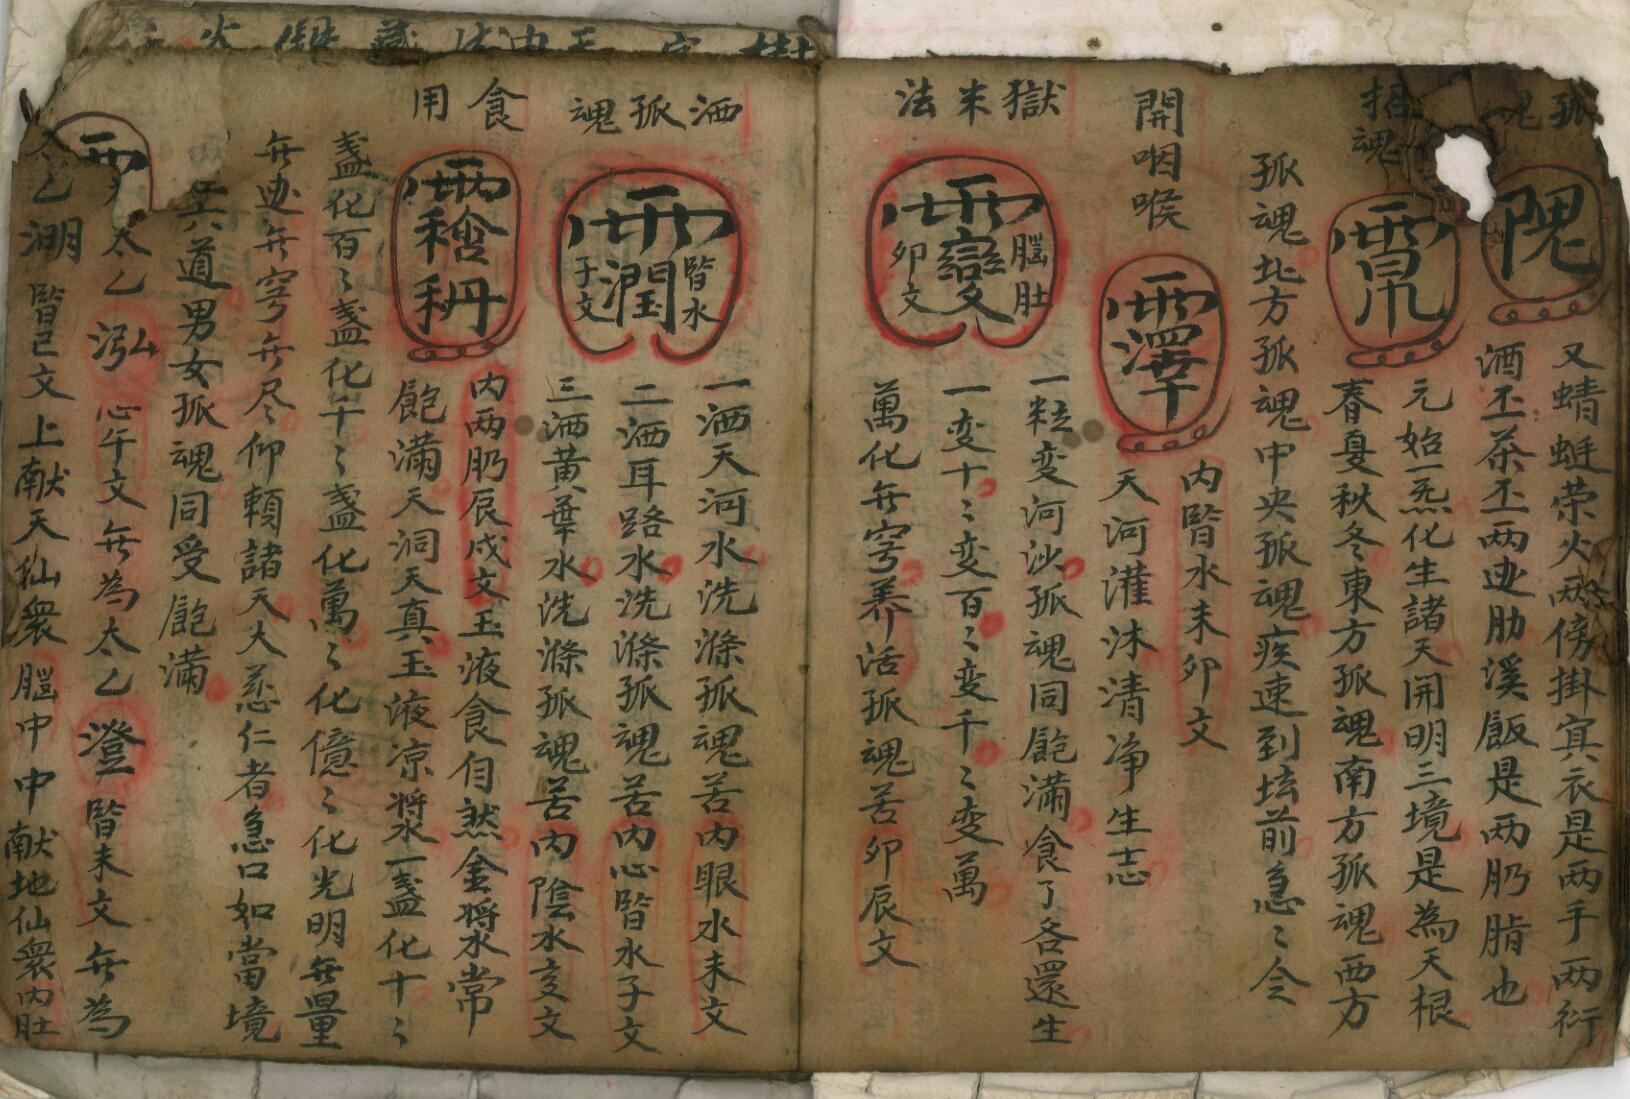 孤魂
隗
又蜻蜓荣火两傍掛寘衣是两手两衍
酒丕茶丕两边肋溪飯是两肟脂也
招魂
元始一炁化生諸天開明三境是為天根
春夏秋冬東方孤魂南方孤魂西方
孤魂北方孤魂中央孤魂疾速到坛前急〻令
開咽喉
内暋水未卯文
天河灌沐清净生志
獄米法
變
腽肚
卯文
一粒变河沙孤魂同飽满食了各還生
一变十〻变百〻变千〻变萬
萬化无穷养活孤魂苦卯辰文
洒孤魂
潤
暋水
子文
一洒天河水洗滌孤魂苦内眼水未文
二洒耳路水洗滌孤魂苦内心暋水子文
三洒黄華水洗滌孤魂苦内陰水亥文
食用
内两肟辰戌文玉液食自然金漿水常
飽滿天洞天真玉液凉漿一盏化十〻
盏化百〻盏化千〻盏化萬〻化億〻化光明無量
无边无穷无尽仰賴諸天大慈仁者急口如當境
六道男女孤魂同受飽滿
太乙泓心午文无為太乙澄暋未文无為
太乙溯暋巳文上献天仙衆腽中中献地仙衆内肚